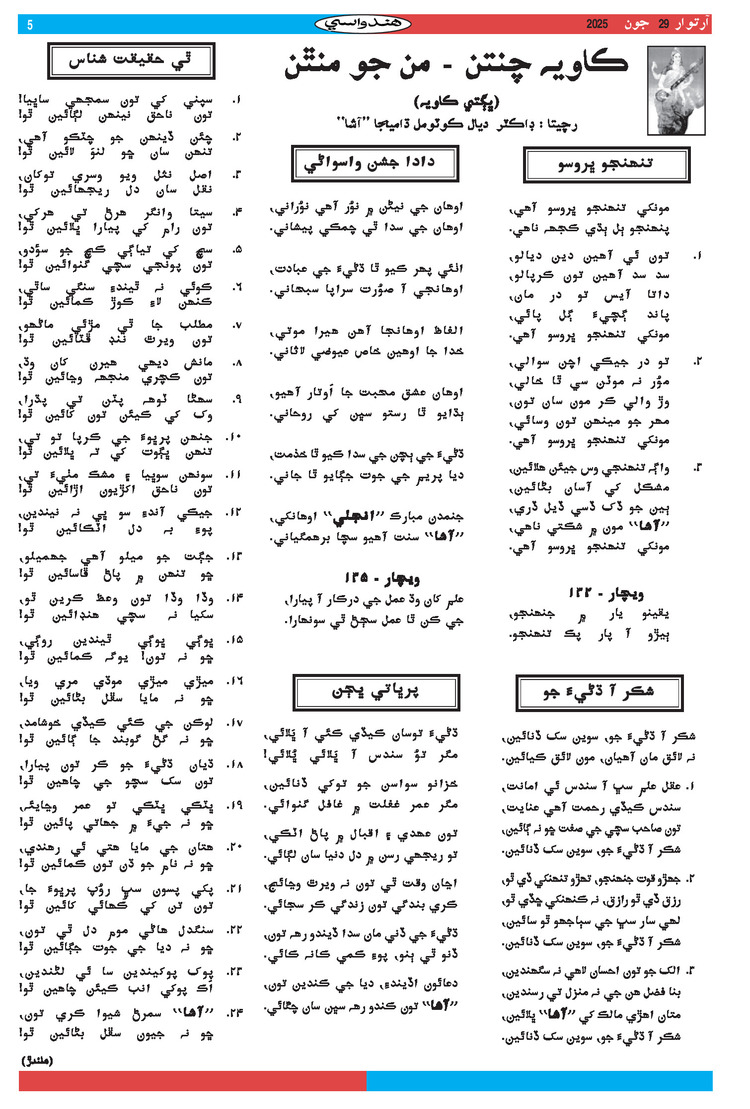 آرتوار 29 جون 2025
هندواسي
5
ڪاويہ چنتن - من جو منٿن
(ڀڳتي ڪاويہ)
رچيتا : ڊاڪٽر ديال ڪوٽومل ڌاميجا ”آشا“
تنهنجو ڀروسو
مونکي تنهنجو ڀروسو آهي،
پنهنجو ٻل ٻڌي ڪجهہ ناهي.
۱. تون ئي آهين دين ديالو،
سد سد آهين تون ڪرپالو،
داتا آيس تو در مان،
پاند ڳچيءَ ڳل پائي،
مونکي تنهنجو ڀروسو آهي.
۲. تو در جيڪي اچن سوالي،
موُر نہ موٽن سي ٿا خالي،
وڙ والي ڪر مون سان تون،
مهر جو مينهن تون وسائي،
مونکي تنهنجو ڀروسو آهي.
۳. واڳہ تنهنجي وس جيئن هلائين،
مشڪل کي آسان بڻائين،
ٻين جو ڏک ڏسي ڏيل ڏري،
”آشا“ مون ۾ شڪتي ناهي،
مونکي تنهنجو ڀروسو آهي.
ويچار - ۱۳۲
يقينو يار ۾ جنهنجو،
ٻيڙو آ پار پڪ تنهنجو.
شڪر آ ڌڻيءَ جو
شڪر آ ڌڻيءَ جو، سوين سک ڏنائين،
نہ لائق مان آهيان، مون لائق ڪيائين.
۱. عقل علم سڀ آ سندس ئي امانت،
سندس ڪيڏي رحمت آهي عنايت،
تون صاحب سچي جي صفت ڇو نہ ڳائين،
شڪر آ ڌڻيءَ جو، سوين سک ڏنائين.
۲. جهڙو قوت جنهنجو، تهڙو تنهنکي ڏي ٿو،
رزق ڏي ٿو رازق، نہ ڪنهنکي ڇڏي ٿو،
لهي سار سڀ جي سڀاجهو ٿو سائين،
شڪر آ ڌڻيءَ جو، سوين سک ڏنائين.
۳. الک جو تون احسان لاهي نہ سگهندين،
بنا فضل هن جي نہ منزل تي رسندين،
متان اهڙي مالڪ کي ”آشا“ ڀلائين،
شڪر آ ڌڻيءَ جو، سوين سک ڏنائين.
دادا جشن واسواڻي
اوهان جي نيڻن ۾ نوُر آهي نوُراني،
اوهان جي سدا ٿي چمڪي پيشاني.
اٺئي پهر ڪيو ٿا ڌڻيءَ جي عبادت،
اوهانجي آ صوُرت سراپا سبحاني.
الفاظ اوهانجا آهن هيرا موتي،
خدا جا اوهين خاص عيوضي لاثاني.
اوهان عشق محبت جا اَوتار آهيو،
ٻڌايو ٿا رستو سڀن کي روحاني.
ڌڻيءَ جي ٻچن جي سدا ڪيو ٿا خذمت،
ديا پريم جي جوت جڳايو ٿا جاني.
جنمدن مبارڪ ”انجلي“ اوهانکي،
”آشا“ سنت آهيو سچا برهمگياني.
ويچار - ۱۳۵
علم کان وڌ عمل جي درڪار آ پيارا،
جي ڪن ٿا عمل سڄڻ ٿي سونهارا.
پرڀاتي ڀڄن
ڌڻيءَ توسان ڪيڏي ڪئي آ ڀَلائي،
مگر توُ سندس آ ڀَلائي ڀُلائي!
خزانو سواسن جو توکي ڏنائين،
مگر عمر غفلت ۾ غافل گنوائي.
تون عهدي ۽ اقبال ۾ پاڻ اٽڪي،
تو ريجهي رسن ۾ دل دنيا سان لڳائي.
اڃان وقت ٿي تون نہ ويرٿ وڃائج،
ڪري بندگي تون زندگي ڪر سجائي.
ڌڻيءَ جي ڏني مان سدا ڏيندو رهہ تون،
ڏنو ٿي ٻنو، پوءِ ڪمي ڪانہ ڪائي.
دعائون اڏيندءِ، ديا جي ڪندين تون،
”آشا“ تون ڪندو رهہ سڀن سان چڱائي.
ٿي حقيقت شناس
۱. سپني کي تون سمجهي ساڀيا!
تون ناحق نينهن لڳائين ٿو!
۲. چئن ڏينهن جو چٽڪو آهي،
تنهن سان ڇو لنوَ لائين ٿو!
۳. اصل نقل ويو وسري توکان،
نقل سان دل ريجهائين ٿو!
۴. سيتا وانگر هرڻ تي هرکي،
تون رام کي پيارا ڀلائين ٿو!
۵. سچ کي تياڳي ڪچ جو سؤدو،
تون پونجي سچي گنوائين ٿو!
۶. ڪوئي نہ ٿيندءِ سنگي ساٿي،
ڪنهن لاءِ ڪوڙ ڪمائين ٿو!
۷. مطلب جا ٿي مڙئي ماڻهو،
تون ويرٿ ننڊ ڦٽائين ٿو!
۸. مانش ديهي هيرن کان وڌ،
تون ڪچري منجهہ وڃائين ٿو!
۹. سهڻا ٽوهہ پٽن تي پڌرا،
وک کي ڪيئن تون کائين ٿو!
۱۰. جنهن پرڀوءَ جي ڪرپا تو تي،
تنهن ڀڳوت کي تہ ڀلائين ٿو!
۱۱. سونهن سوڀيا ۽ مشڪ مٺيءَ تي،
تون ناحق اکڙيون اڙائين ٿو!
۱۲. جيڪي آندءِ سو ڀي نہ نيندين،
پوءِ بہ دل اٽڪائين ٿو!
۱۳. جڳت جو ميلو آهي جهميلو،
ڇو تنهن ۾ پاڻ ڦاسائين ٿو!
۱۴. وڏا وڏا تون وعظ ڪرين ٿو،
سکيا نہ سچي هنڊائين ٿو!
۱۵. ڀوڳي ڀوڳي ٿيندين روڳي،
ڇو نہ تون! يوگہ ڪمائين ٿو!
۱۶. ميڙي ميڙي موڏي مري ويا،
ڇو نہ مايا سڦل بڻائين ٿو!
۱۷. لوڪن جي ڪئي ڪيڏي خوشامد،
ڇو نہ گڻ گوبند جا ڳائين ٿو!
۱۸. ڌيان ڌڻيءَ جو ڪر تون پيارا،
تون سک سچو جي چاهين ٿو!
۱۹. ڀٽڪي ڀٽڪي تو عمر وڃايئہ،
ڇو نہ جيءَ ۾ جهاتي پائين ٿو!
۲۰. هتان جي مايا هتي ئي رهندي،
ڇو نہ نام جو ڌن تون ڪمائين ٿو!
۲۱. پکي پسون سڀ روُپ پرڀوءَ جا،
تون تن کي ڪُهائي کائين ٿو!
۲۲. سنگدل هاڻي موم دل ٿي تون،
ڇو نہ ديا جي جوت جڳائين ٿو!
۲۳. پوک پوکيندين سا ئي لڻندين،
اَڪ پوکي انب ڪيئن چاهين ٿو!
۲۴. ”آشا“ سمرڻ شيوا ڪري تون،
ڇو نہ جيون سڦل بڻائين ٿو!
(هلندڙ)